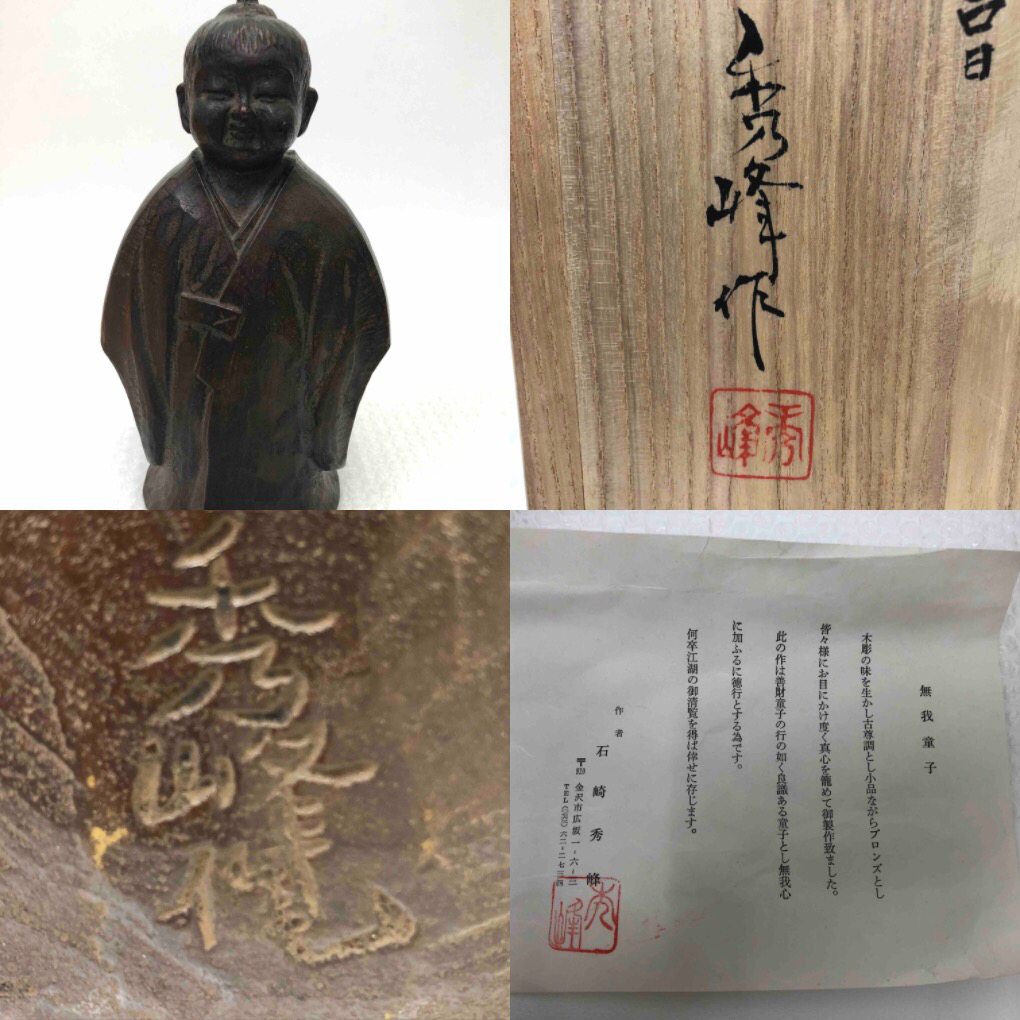 秀峰作
秀峰
秀峰
無我童子
木彫の味を生かし古尊調とし小品ながらブロンズとし
皆々様にお目にかけ度く真心を籠めて御製作致ました。
此の作は善財童子の行の如く良識ある童子とし無我心
に加ふるに徳行とする為です。
何卒江湖の御清覧を得ば倖せに存じます。
作者
石崎秀峰
〒920 金沢市広坂一-六-三
秀峰